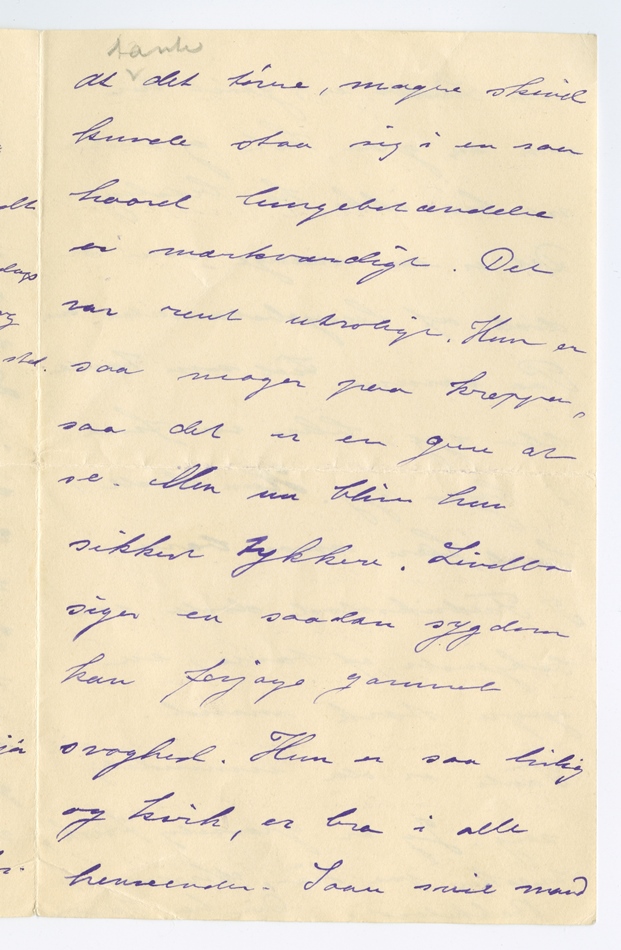 tank
at det tørre, magre skind
kunde staa sig i en saa
haard lungebetændelse
er mærkværdigt. Det
var rent utroligt. Hun er
saa mager paa kroppen,
saa det er en gru at
se. Men nu bliver hun
sikkert tykkere. Lindbo
siger en saadan sygdom
kan forjage gammel
svaghed. Hun er saa livlig
og kvik, er bra i alle
henseender. Saan svir mand